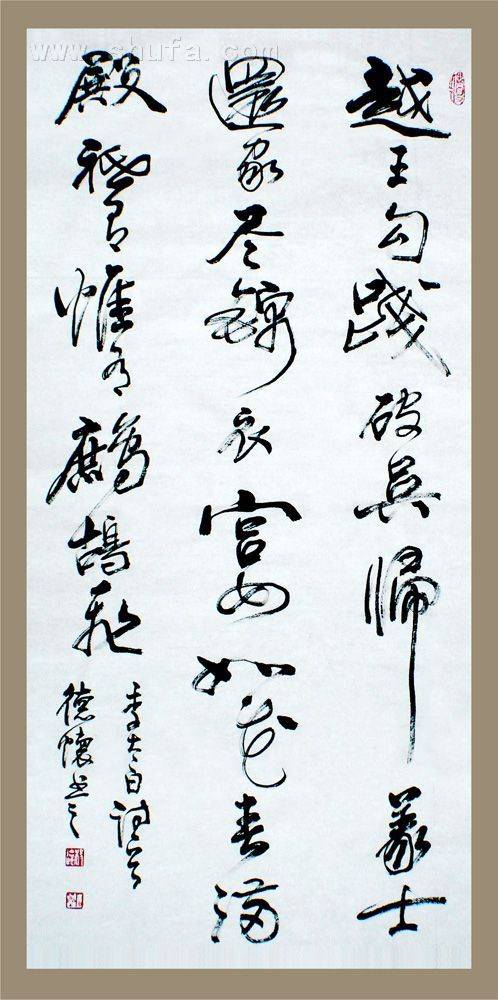 越王勾踐破吳歸義士
還家尽錦衣宮女如花春滿
殿祗今惟有鷓鴣飛
李太白詩
德懷书之